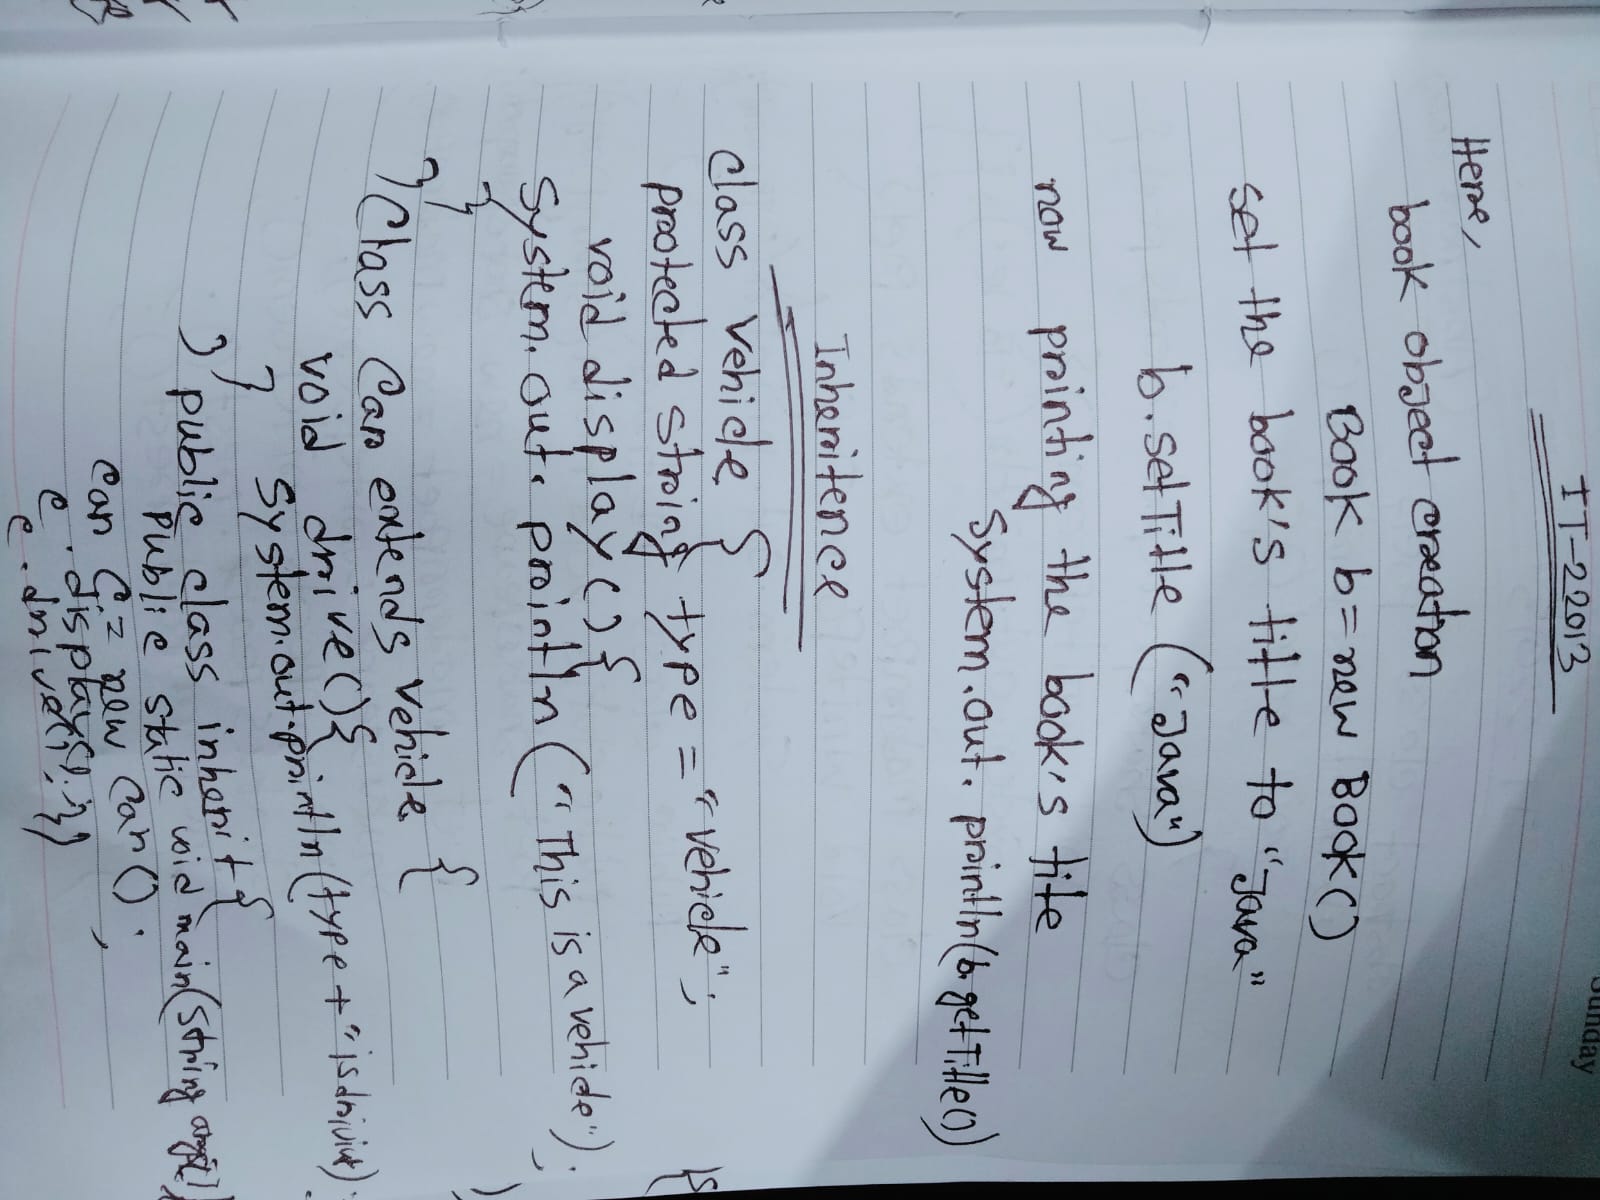 Sunday
IT-22013
Here,
book object creation
Book b = new Book()
set the book's title to "Java"
b.setTitle ("Java")
now printing the book's title
System.out.println(b.getTitle())
Inheritence
class vehicle {
protected string type = "vehicle";
void display() {
System.out.println("This is a vehicle");
}
}
Class Car extends vehicle {
void drive() {
System.out.println(type + "is
}
}
public class inherit {
public static void main(String
Car C = new Car();
c.display();
c.drive(); } }